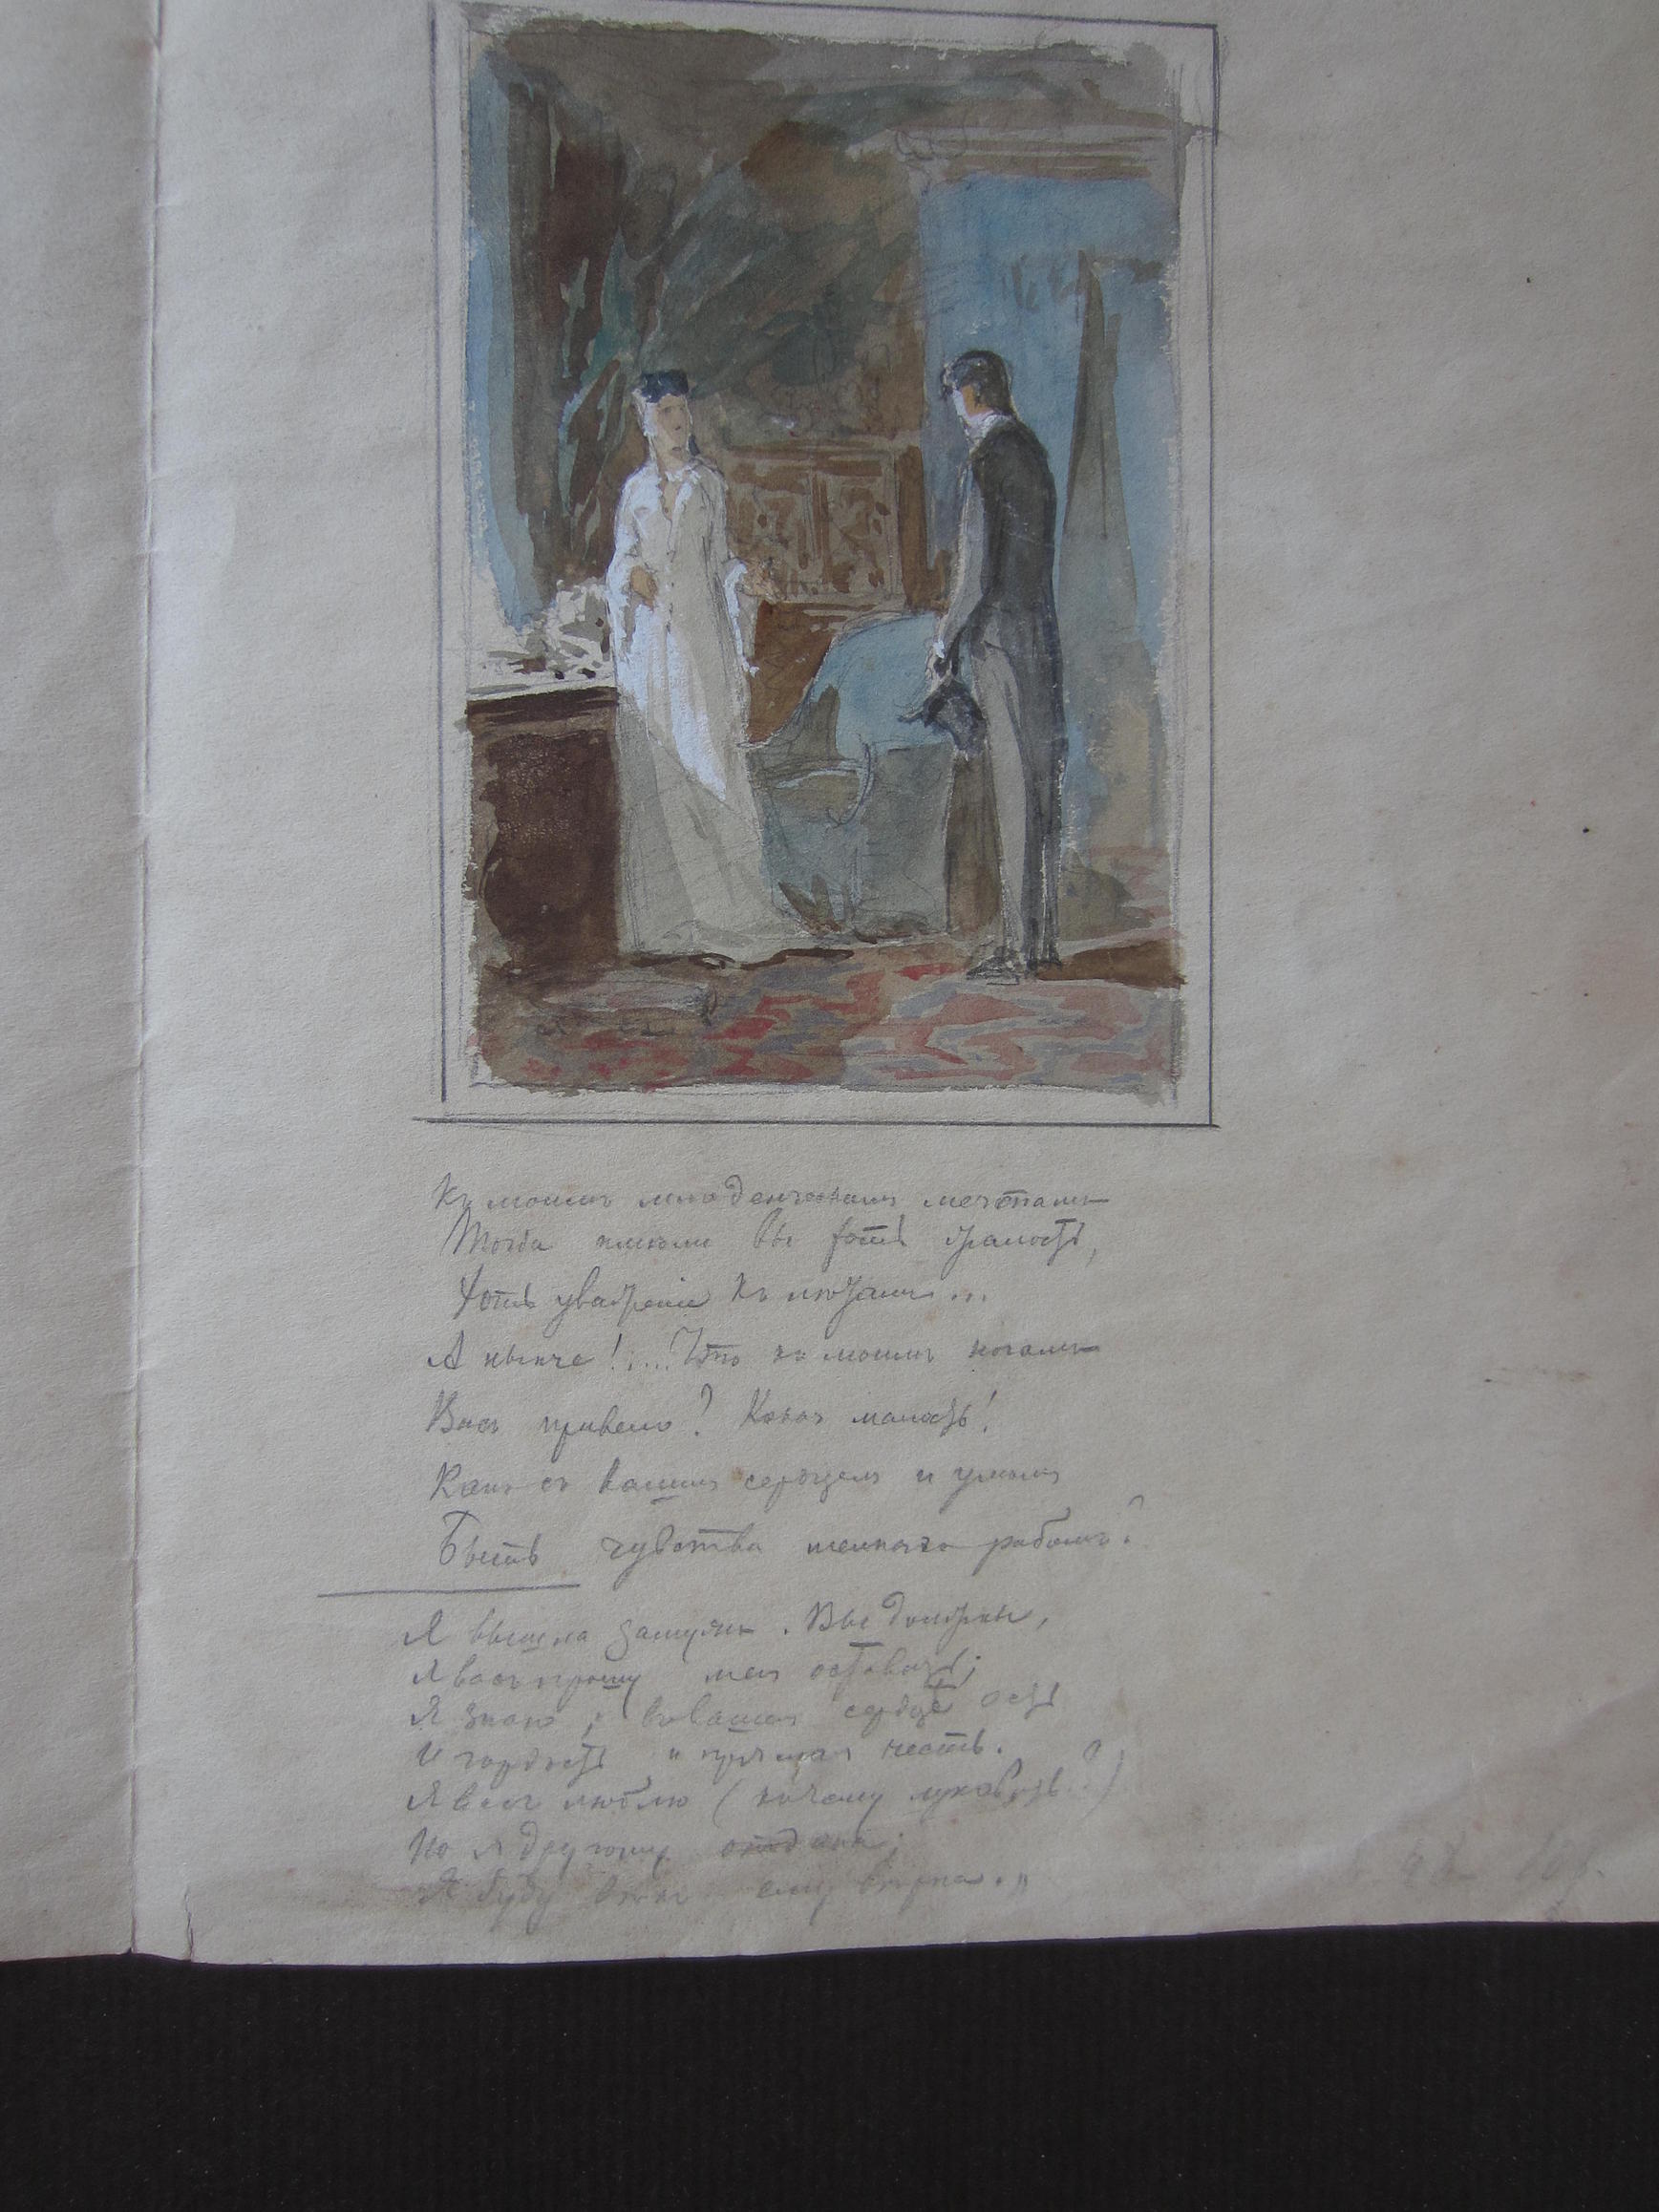 Къ моимъ младенческимъ мечтамъ
Тогда имѣли вы хоть жалость,
Хоть уваженіе къ лѣтамъ...
А нынче!.... Что къ моимъ ногамъ
Васъ привело? Какая малость!
Какъ съ вашимъ сердцемъ и умомъ
Быть чувства мелкаго рабомъ?
Я вышла замужъ. Вы должны,
Я васъ прошу меня оставить;
Я знаю; въ вашемъ сердцѣ есть
И гордость и прямая честь.
Я васъ люблю (къ чему лукавить?)
Но я другому отдана;
Я буду вѣкъ ему вѣрна."